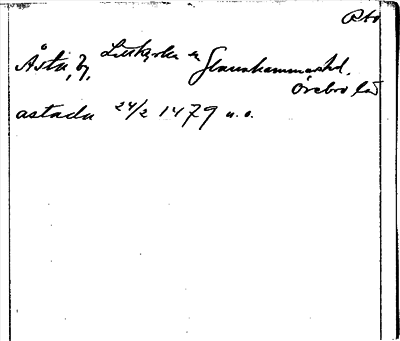 Åsta, by, Lillkyrka sn Glanshammars hd,
Örebro län
astadu 24/2 1479 u. o.